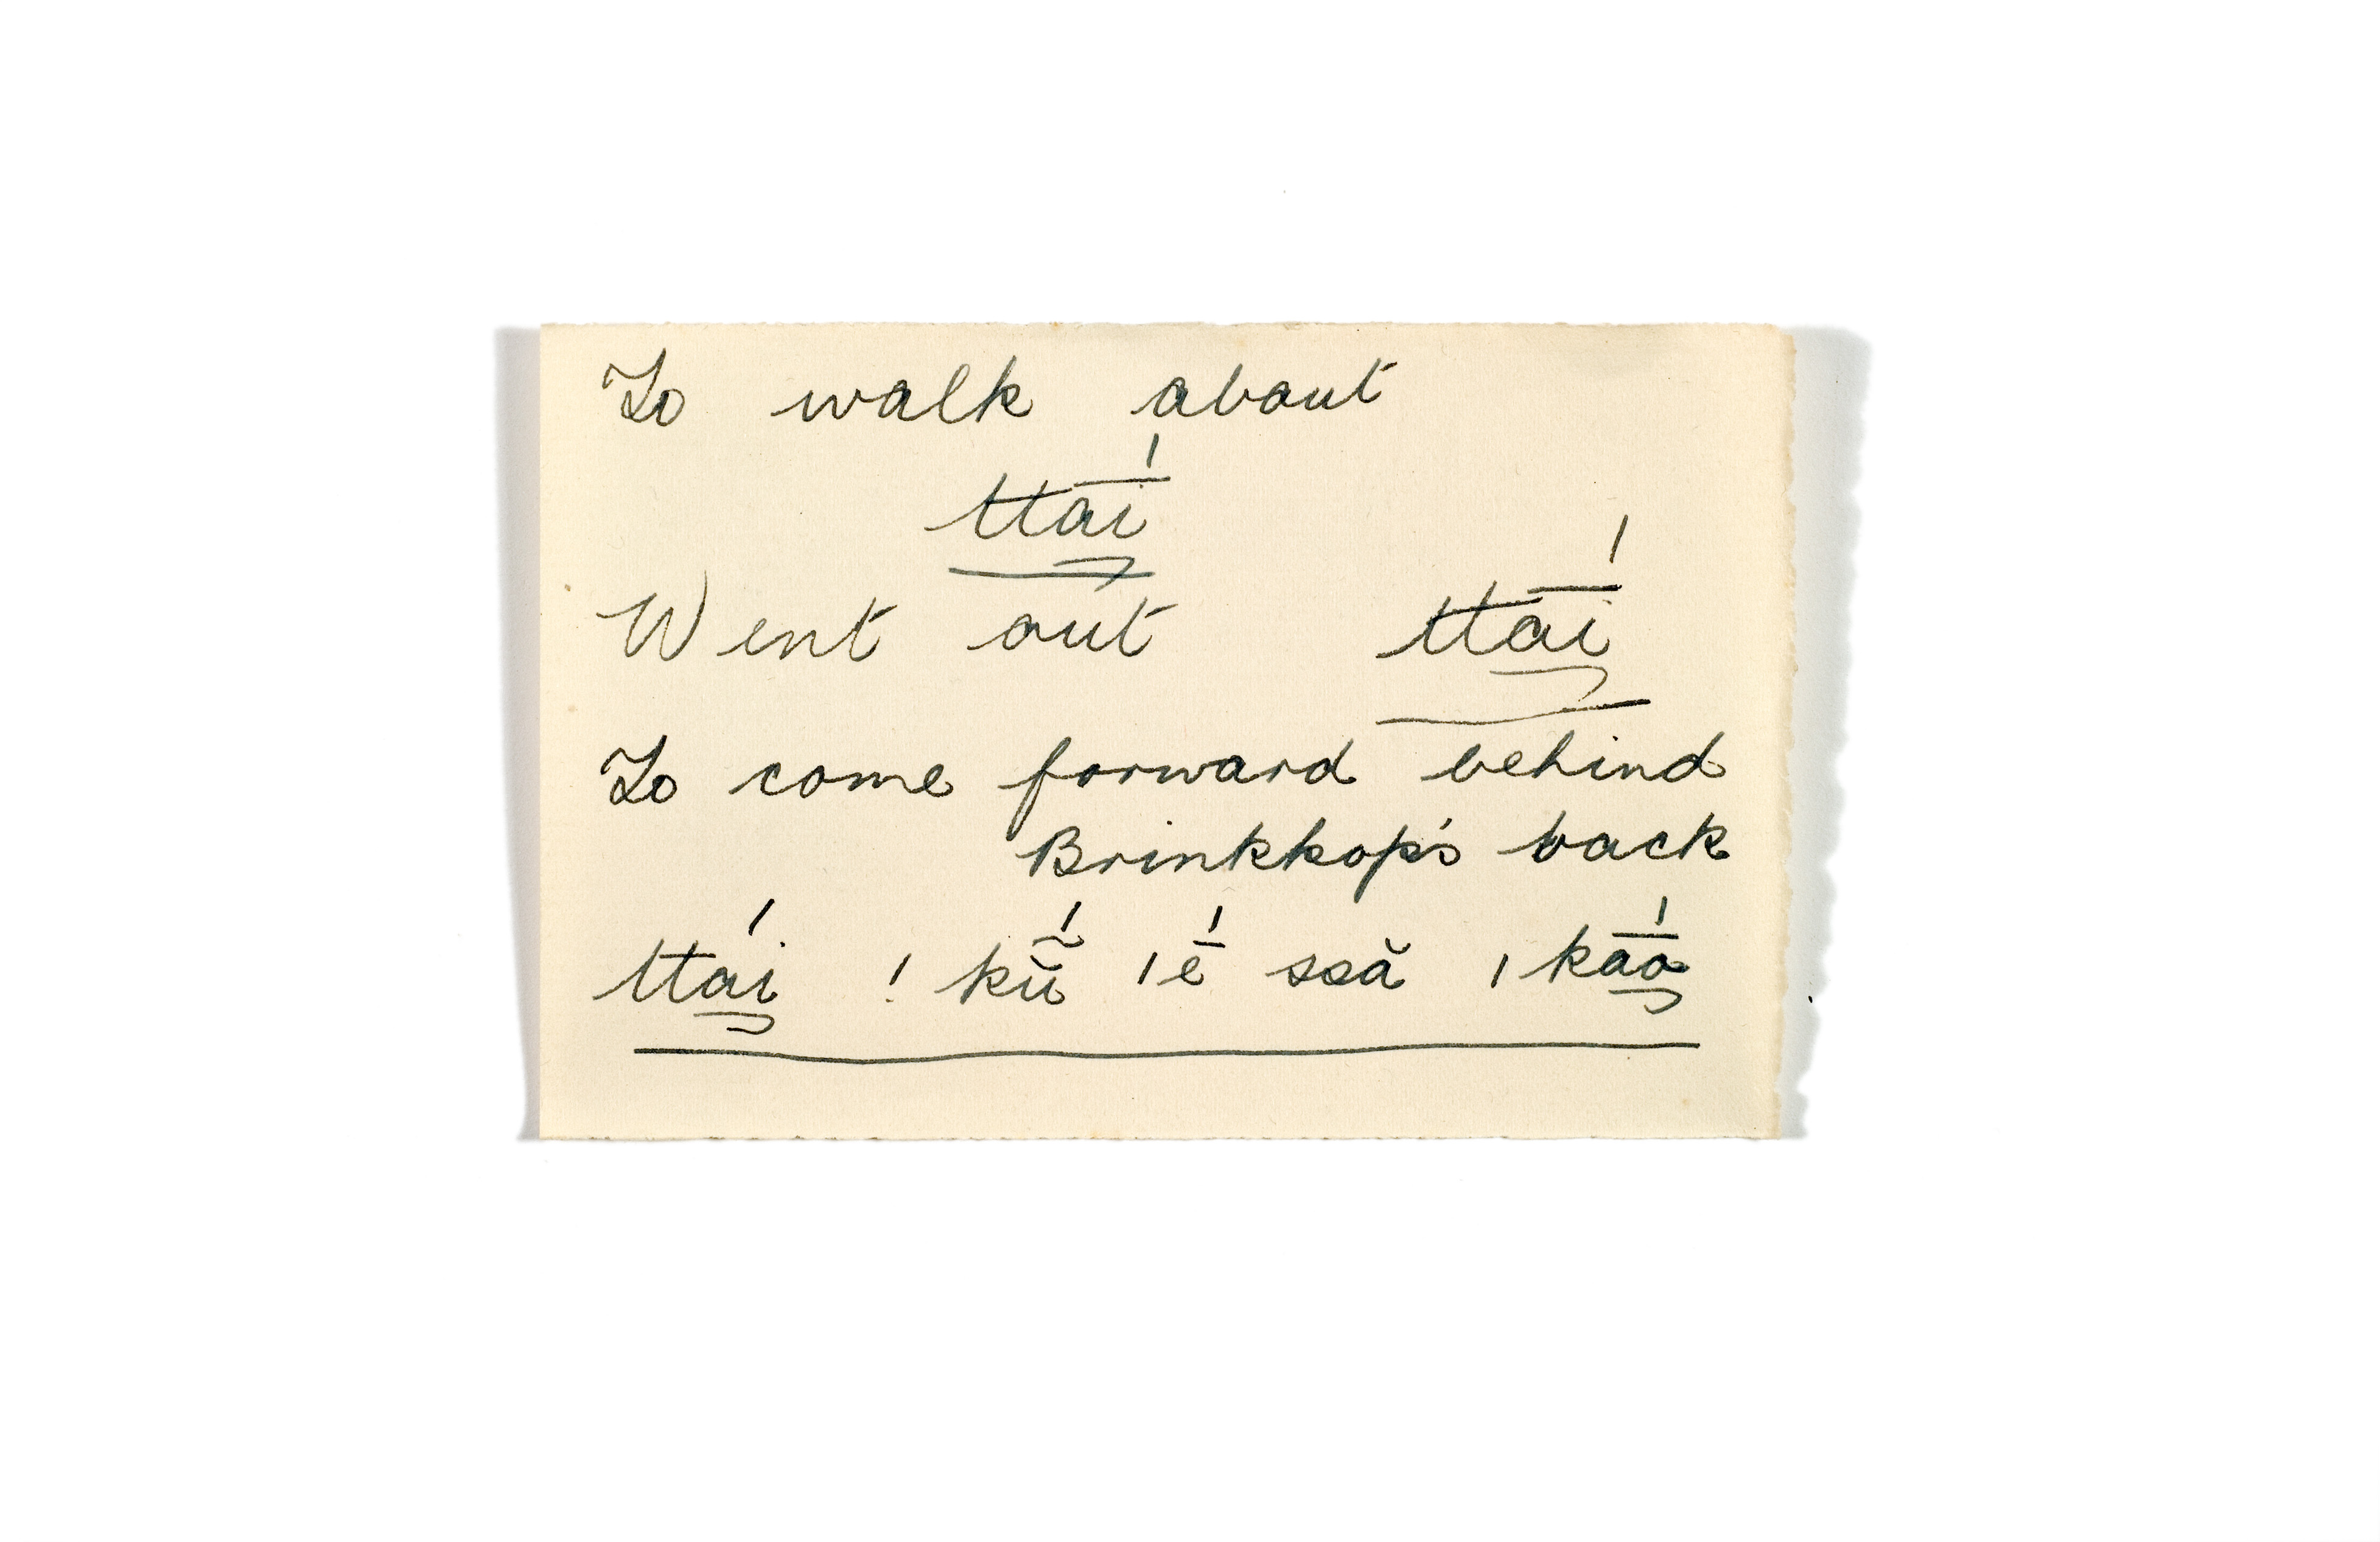 To walk about
ttā́i
Went out ttā́i
To come forward behind
Brinkkop's back
ttái ! kṹ̆ ˈḗ ssă ˈkā́o